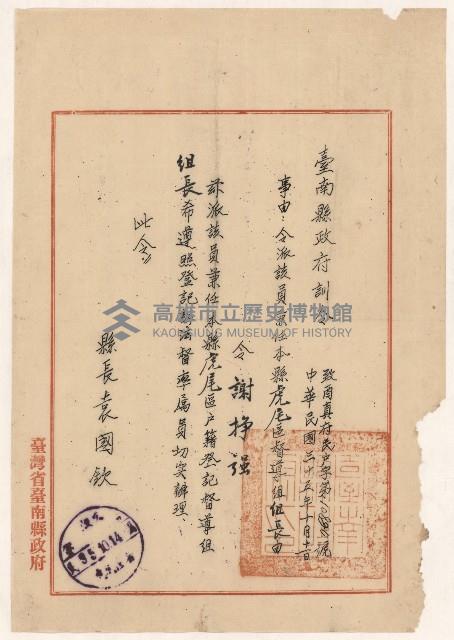 臺南縣政府訓令
致酉真府民戶字第號
中華民國三十五年十月十一日
事由：令派該員兼任本縣虎尾區督導組組長由
令 謝掙强
茲派該員兼任本縣虎尾區戶籍登記督導組
組長希遵照登記辦法督率屬員切实辦理、
此令
縣長袁國欽
臺灣省臺南縣政府
35.10.14
高雄市立歷史博物館
KAOHSIUNG MUSEUM OF HISTORY